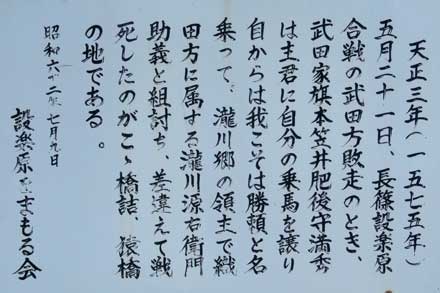 天正三年(一五七五年)
五月二十一日、長篠設楽原
合戦の武田方敗走のとき、
武田家旗本笠井肥後守満秀
は主君に自分の乗馬を譲り
自からは我こそは勝頼と名
乗って、瀧川郷の領主で織
田方に属する瀧川源右衛門
助義と組討ち、差違えて戦
死したのがこゝ橋詰 猿橋
の地である。
昭和六十二年七月九日
設楽原をまもる会